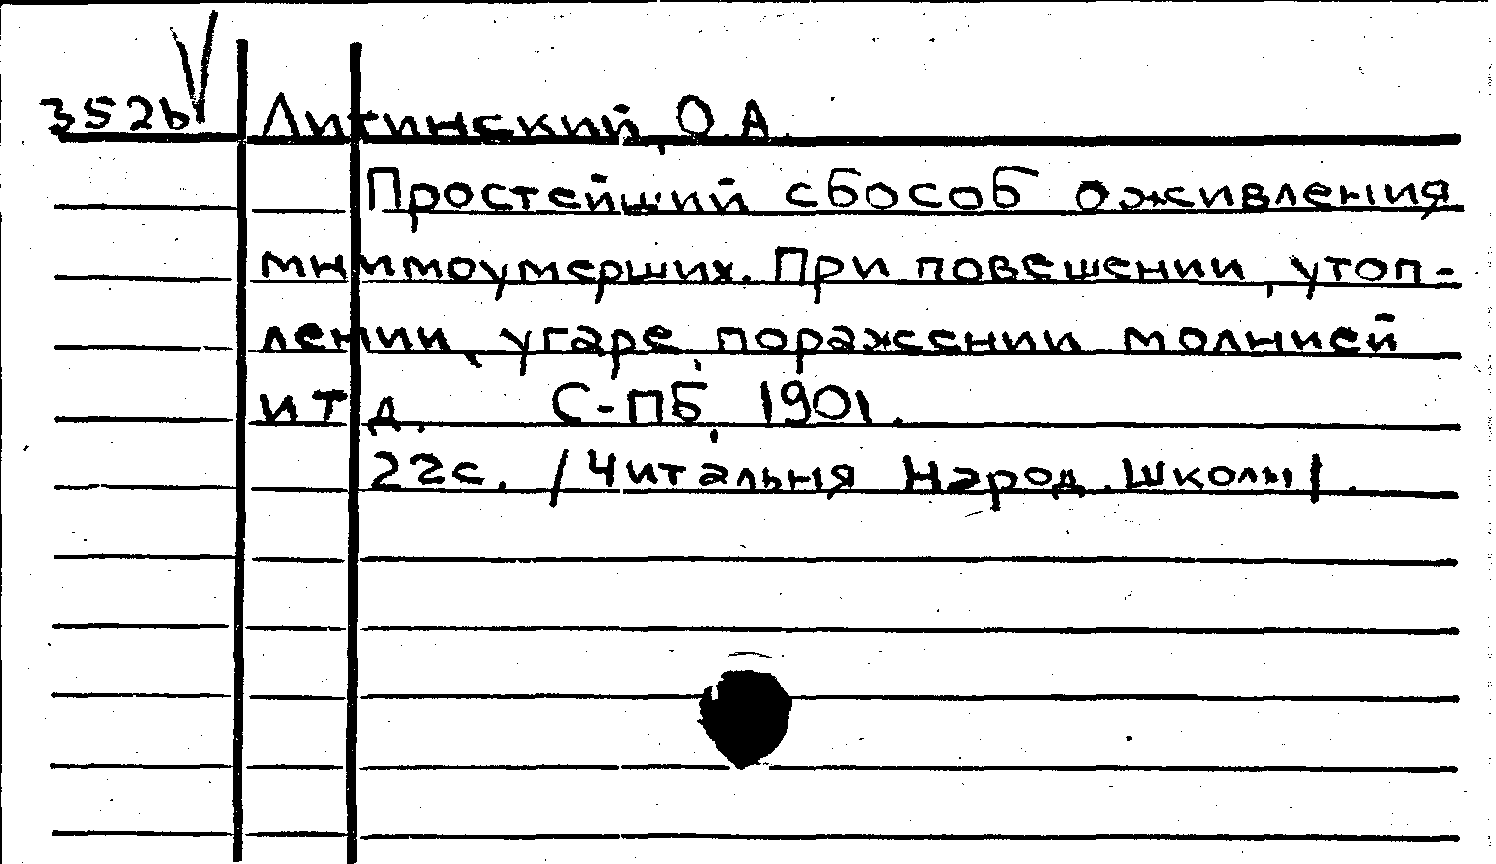 352b Литинский, О.А.
Простейший сбособ оживления
мнимоумерших. При повешении, утоп-
лении, угаре, поражении молнией
и т д. С-ПБ, 1901.
22с. /Читальня Народ. школы/.